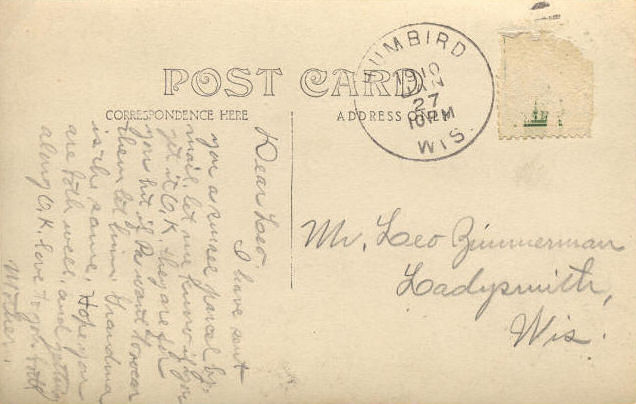 POST CARD
CORRESPONDENCE HERE
ADDRESS ONLY
HUMBIRD
1910
JAN
27
10PM
WIS.
Dear Leo.
I have sent
you a small parcel by
mail. let me know if you
get it O.K. they are for
you but if Pa want to wear
them let him. Grandma
is the same. Hope you
are both well. and getting
along O.K. Love to you both
Mother.
Mr. Leo Zimmerman
Ladysmith,
Wis.